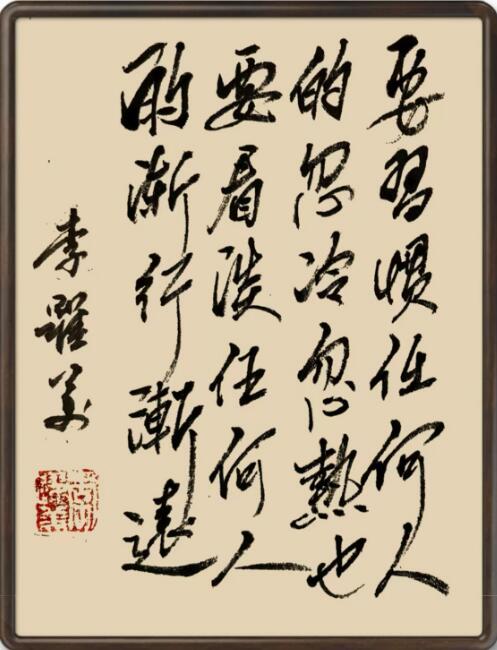 要習慣任何人
的忽冷忽熱也
要看淡任何人
的漸行漸遠
李躍